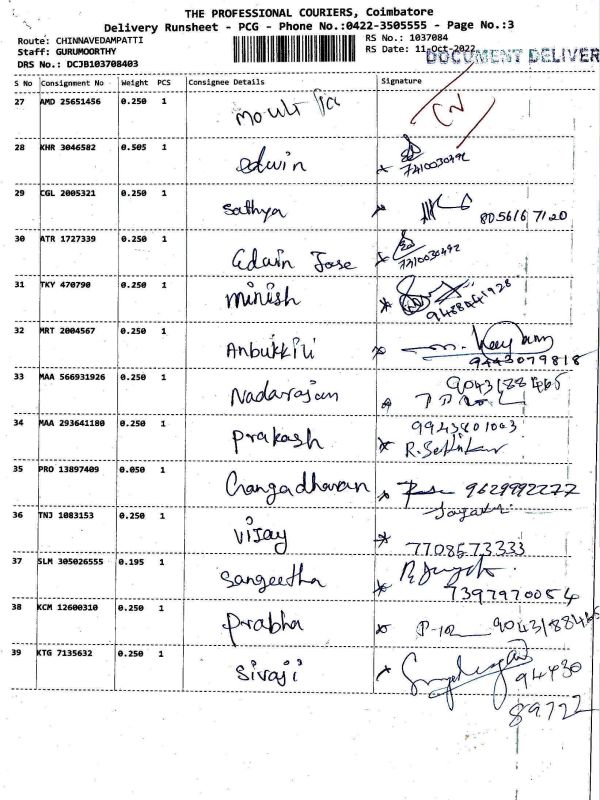 THE PROFESSIONAL COURIERS, Coimbatore
Delivery Runsheet - PCG - Phone No.:0422-3505555 - Page No.:3
Route: CHINNAVEDAMPATTI
RS No.: 1037084
Staff: GURUMOORTHY
RS Date: 11-Oct-2022
DOCUMENT DELIVER
DRS No.: DCJB103708403
S No Consignment No Weight PCS Consignee Details Signature
27 AMD 25651456 0.250 1
28 KHR 3046582 0.505 1 edwin
7410030492
29 CGL 2005321 0.250 1 Sathya
8056167120
30 ATR 1727339 0.250 1 Edwin Jose
7310030492
31 TKY 470790 0.250 1 minish
9488441928
32 MRT 2004567 0.250 1 Anbukkili
9443079818
33 MAA 566931926 0.250 1 Nadarajan
9043188465
34 MAA 293641180 0.250 1 Prakash
9943801003
35 PRO 13897409 0.050 1 Changadharan
9629992277
36 TNJ 1083153 0.250 1 Vijay
7708573333
37 SLM 305026555 0.195 1 Sangeetha
7397970054
38 KCM 12600310 0.250 1 Prabha
9043188465
39 KTG 7135632 0.250 1 Sivaji
94430
89722